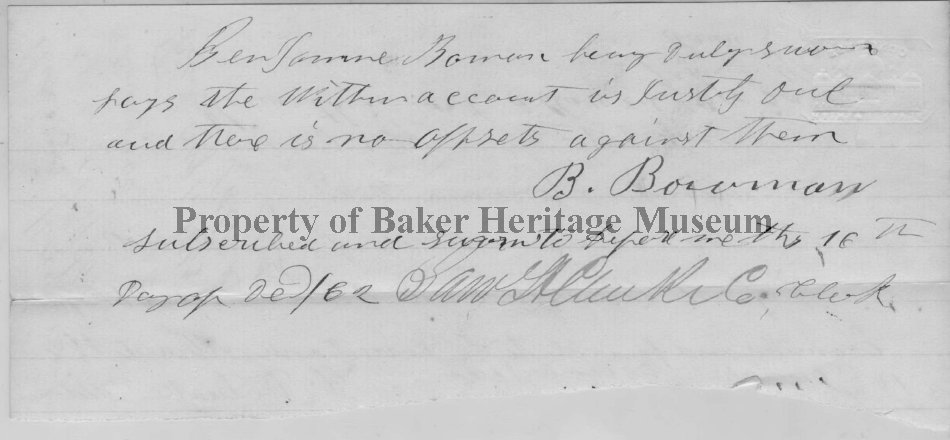 Benjamine Boman being duly sworn
says the within account is Justly due
and thare is no offsets against them
B. Bowman
Property of Baker Heritage Museum
Subscribed and sworn to before me this 16th
Day of Dec/62 Clerk